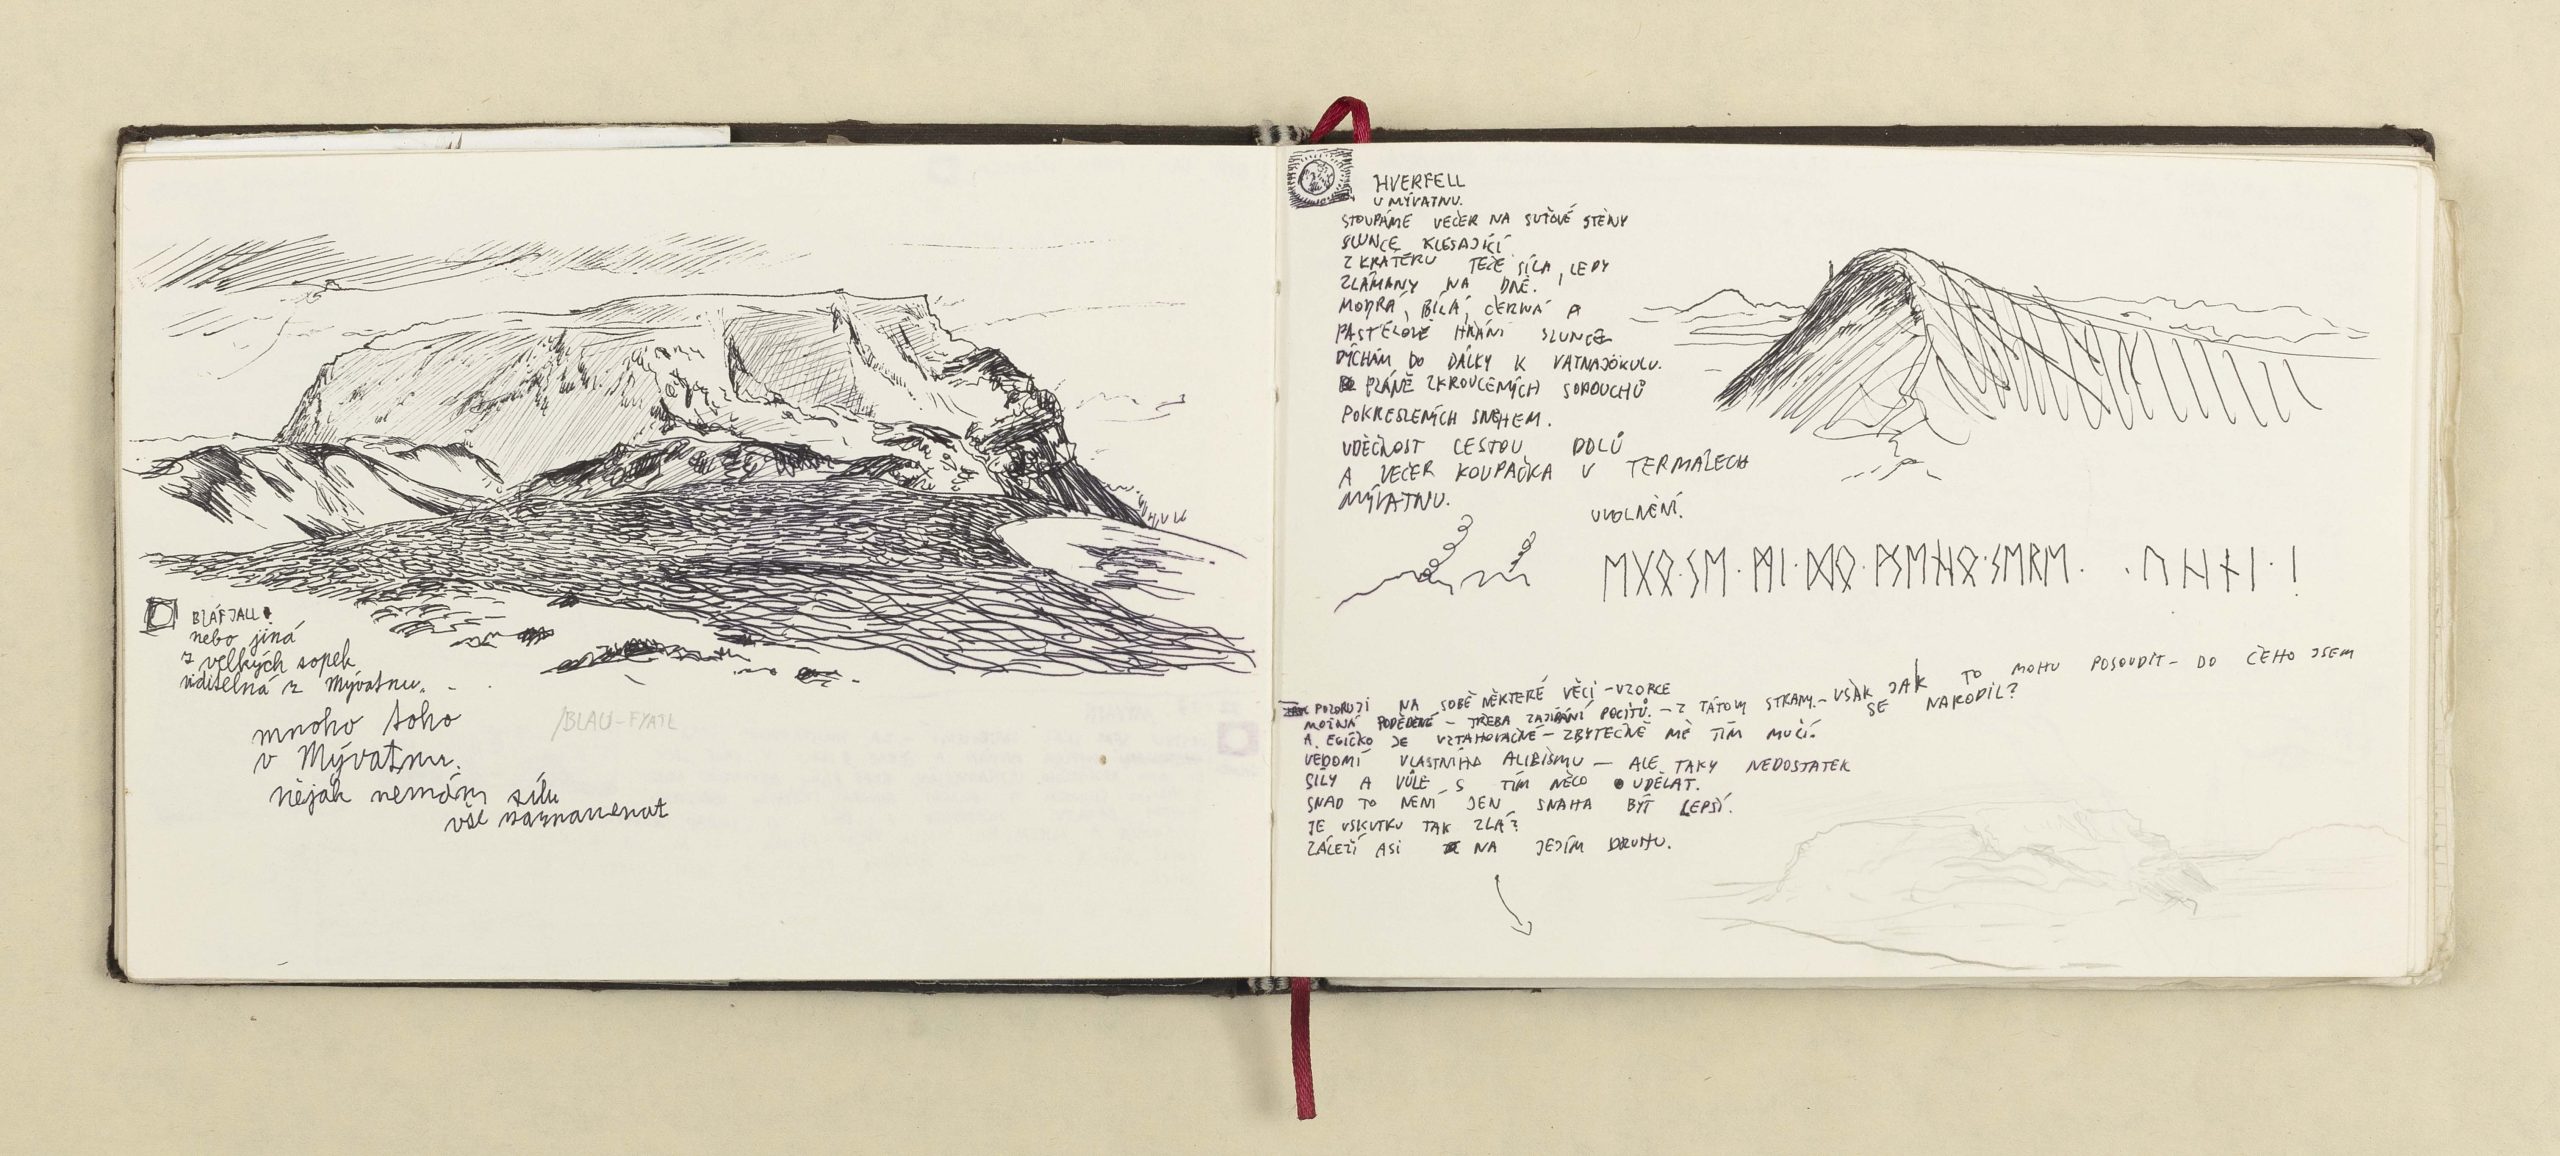 BLÁFJALL.
nebo jiná
z velkých sopek
viditelná z Mývatnu.
mnoho toho
v Mývatnu.
nějak nemám sílu
vše zaznamenat
/BLAU-FYATL
HVERFELL
U MÝVATNU.
STOUPÁME VEČER NA SUŤOVÉ STĚNY
SLUNCE KLESAJÍCÍ
Z KRÁTERU TEČE SÍLA, LEDY
ZLÁMANY NA DNĚ.
MODRÁ, BÍLÁ, ČERNÁ A
PASTELOVÉ HRÁNÍ SLUNCE
DÝCHÁM DO DÁLKY K VATNAJÖKULU.
PLÁNĚ ZKROUCENÝCH SOPOUCHŮ
POKRESLENÝCH SNĚHEM.
VDĚČNOST CESTOU DOLŮ
A VEČER KOUPAČKA V TERMÁLECH
MÝVATNU.
UVOLNĚNÍ.
POZORUJI NA SOBĚ NĚKTERÉ VĚCI - VZORCE
MOŽNÁ PODĚDĚNÉ - TŘEBA ZAZÍRÁNÍ POCITŮ. - Z TÁTOVY STRANY. - VŠAK JAK TO MOHU POSOUDIT - DO ČEHO JSEM SE NARODIL?
A EGÍČKO JE VZTAHOVAČNÉ - ZBYTEČNĚ MĚ TÍM MUČÍ.
VĚDOMÍ VLASTNÍHO ALIBISMU - ALE TAKY NEDOSTATEK
SÍLY A VŮLE S TÍM NĚCO UDĚLAT.
SNAD TO NENÍ JEN SNAHA BÝT LEPŠÍ.
JE VSKUTKU TAK ZLÁ?
ZÁLEŽÍ ASI NA JEJÍM DRUHU.